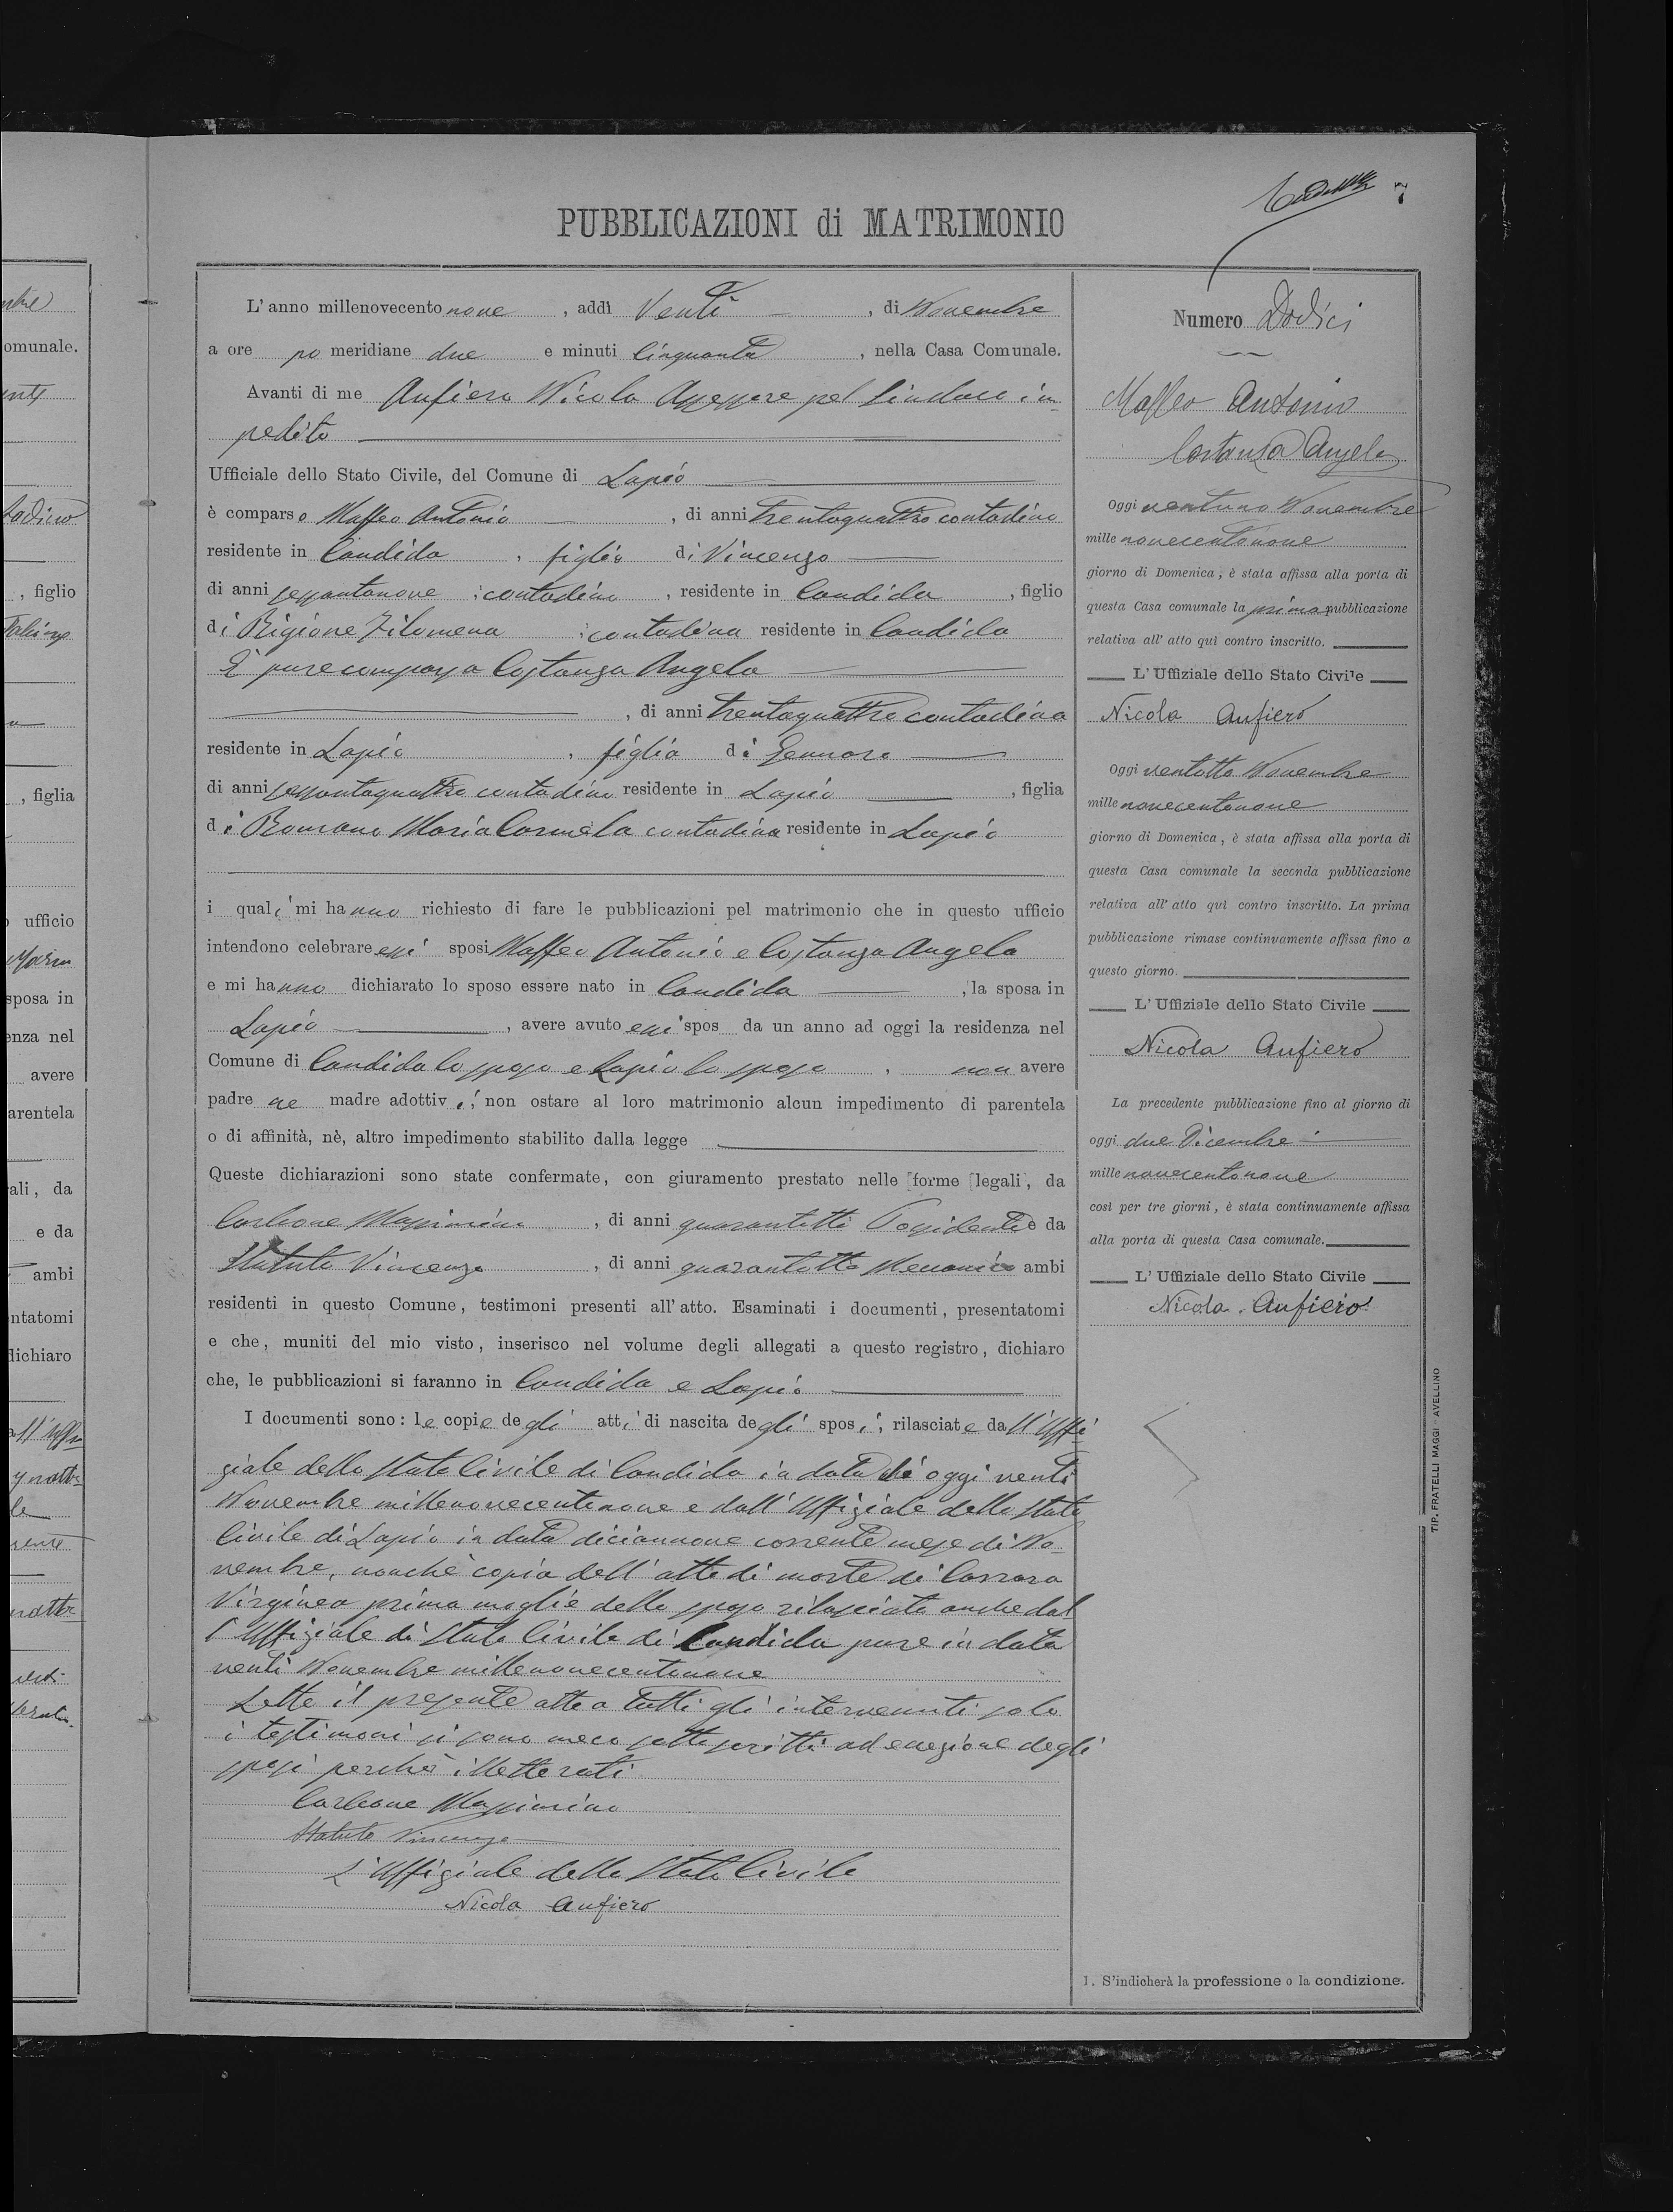 7
PUBBLICAZIONI di MATRIMONIO
L'anno millenovecento nove, addì Venti, di Novembre
a ore po meridiane due e minuti Cinquanta, nella Casa Comunale.
Avanti di me Aufiero Nicola Assessore pel Sindaco im
pedito
Ufficiale dello Stato Civile, del Comune di Lapio
è comparso Maffeo Antonio, di anni trentaquattro contadino
residente in Candida, figlio di Vincenzo
di anni sessantanove contadino, residente in Candida, figlio
di Rigione Filomena contadina residente in Candida
È pure comparsa Costanza Angela
, di anni trentaquattro contadina
residente in Lapio, figlia di Gennaro
di anni sessantaquattro contadino residente in Lapio, figlia
di Romano Maria Carmela contadina residente in Lapio
i quali mi hanno richiesto di fare le pubblicazioni pel matrimonio che in questo ufficio
intendono celebrare essi sposi Maffeo Antonio e Costanza Angela
e mi hanno dichiarato lo sposo essere nato in Candida, la sposa in
Lapio, avere avuto essi spos da un anno ad oggi la residenza nel
Comune di Candida lo sposo e Lapio la sposa, non avere
padre ne madre adottivi, non ostare al loro matrimonio alcun impedimento di parentela
o di affinità, nè, altro impedimento stabilito dalla legge
Queste dichiarazioni sono state confermate, con giuramento prestato nelle forme legali, da
Carbone Massimino, di anni Possidente è da
Statuto Vincenzo, di anni quarantotto Meccanico ambi
residenti in questo Comune, testimoni presenti all'atto. Esaminati i documenti, presentatomi
e che, muniti del mio visto, inserisco nel volume degli allegati a questo registro, dichiaro
che, le pubblicazioni si faranno in Candida e Lapio
I documenti sono: le copie degli atti di nascita degli sposi, rilasciate dall'Uffi
ziale dello Stato Civile di Candida in data di oggi venti
Novembre millenovecentonove e dall'Uffiziale dello Stato
Civile di Lapio in data diciannove corrente mese di No-
vembre, nonchè copia dell'atto di morte di
Virginea prima moglie dello sposo rilasciata anche dal
l'Uffiziale di Stato Civile di Candida pure in data
venti Novembre millenovecentonove
Letto il presente atto a tutti gli intervenuti solo
i testimoni si sono meco sottoscritti ad eccezione degli
sposi perchè illetterati
Carbone Massimino
Statuto Vincenzo
L'Uffiziale dello Stato Civile
Nicola Aufiero
Numero Dodici
Maffeo Antonio
Costanza Angela
Oggi ventuno Novembre
mille novecentonove
giorno di Domenica, è stata affissa alla porta di
questa Casa comunale la prima pubblicazione
relativa all'atto quì contro inscritto.
L'Uffiziale dello Stato Civile
Nicola Aufiero
Oggi ventotto Novembre
mille novecentonove
giorno di Domenica, è stata affissa alla porta di
questa Casa comunale la seconda pubblicazione
relativa all'atto quì contro inscritto. La prima
pubblicazione rimase continvamente affissa fino a
questo giorno.
L'Uffiziale dello Stato Civile
Nicola Aufiero
La precedente pubblicazione fino al giorno di
oggi due Dicembre
mille novecentonove
così per tre giorni, è stata continuamente affissa
alla porta di questa Casa comunale.
L'Uffiziale dello Stato Civile
Nicola Aufiero
1. S'indicherà la professione o la condizione.
TIP. FRATELLI MAGGI - AVELLINO
omunale.
, figlio
, figlia
ufficio
sposa in
enza nel
avere
arentela
ali, da
e da
ambi
ntatomi
dichiaro